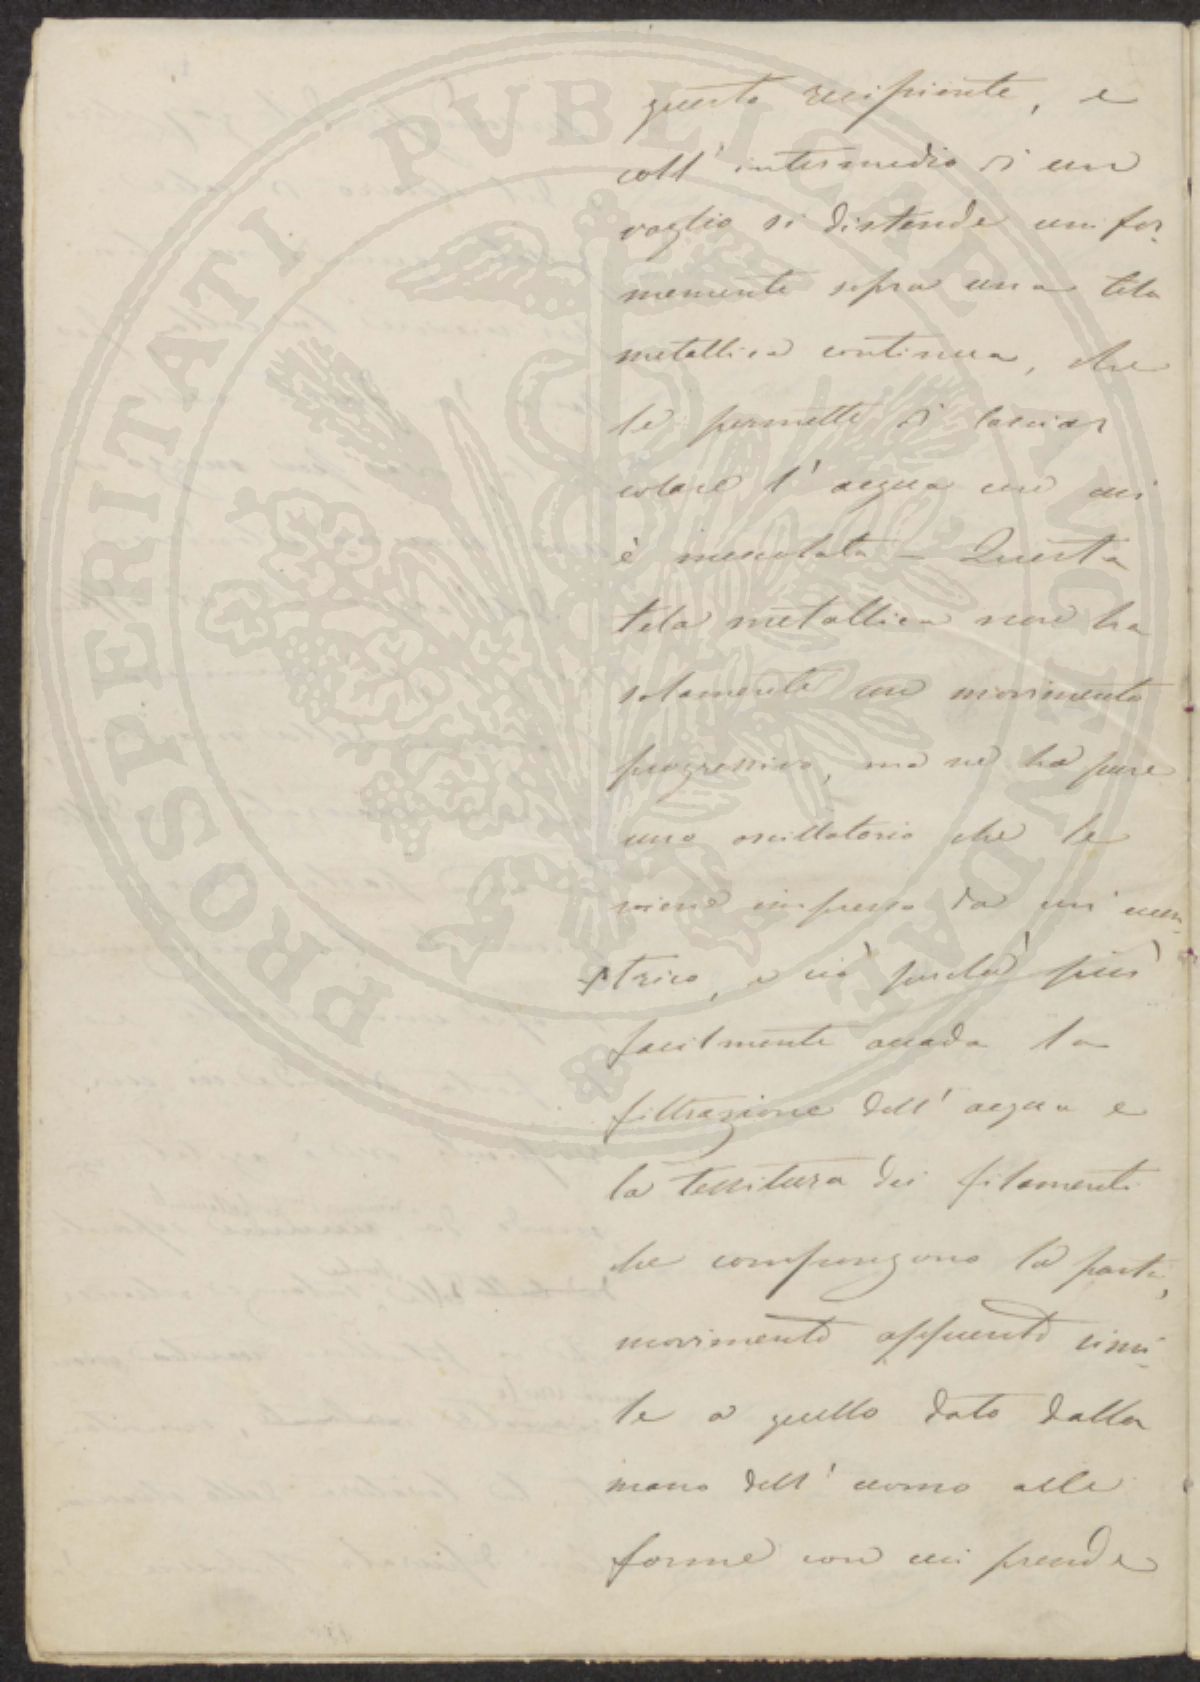 PROSPERITATI PVBLICAE AVGENDAE
questo recipiente, e
coll' intermedio di un
vaglio si distende unifor-
memente sopra una tela
metallica continua, che
le permette di lasciar
colare l' acqua con cui
è mescolata – Questa
tela metallica non ha
solamente un movimento
progressivo, ma ne ha pure
uno oscillatorio che le
viene impresso da un' eccen-
trico, e ciò perchè più
facilmente accada la
filtrazione dell' acqua e
la tessitura dei filamenti
che compongono la pasta,
movimento appunto simi-
le a quello dato dalla
mano dell' uomo alle
forme con cui prende